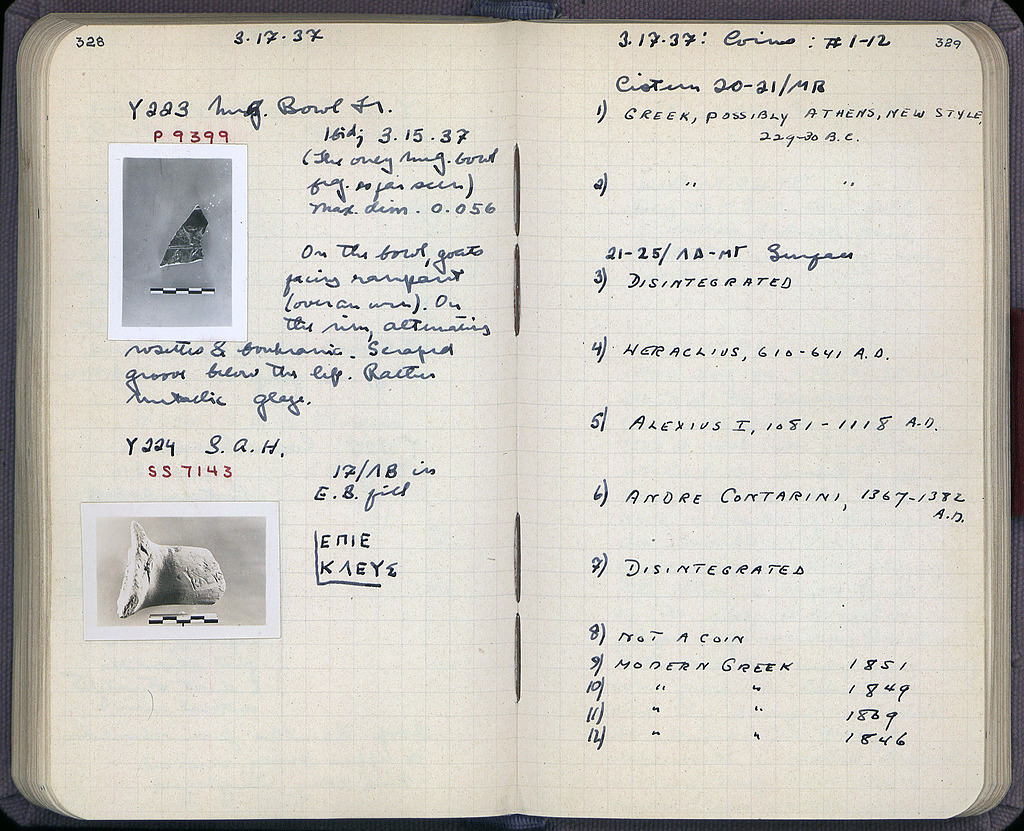 328
3.17.37
Y223 Meg. Bowl Fr.
P 9399
Ibid; 3.15.37
(The only meg. bowl
frg. so far seen)
Max. dim. 0.056
On the bowl, goats
facing rampant
(over an urn). On
the rim, alternating
rosettes & boukrania. Scraped
groove below the lip. Rather
metallic glaze.
Y224 S.A.H.
SS 7143
17/ΛΒ in
E.B. fill
ΕΠΙΕ
ΚΛΕΥΣ
3.17.37: Coins: #1-12
329
Cistern 20-21/ΜΒ
1) GREEK, POSSIBLY ATHENS, NEW STYLE,
229-30 B.C.
2) " "
21-25/ΛΔ-ΜΓ Surface
3) DISINTEGRATED
4) HERACLIUS, 610-641 A.D.
5) ALEXIUS I, 1081-1118 A.D.
6) ANDRE CONTARINI, 1367-1382
A.D.
7) DISINTEGRATED
8) NOT A COIN
9) MODERN GREEK 1851
10) " " 1849
11) " " 1869
12) " " 1846